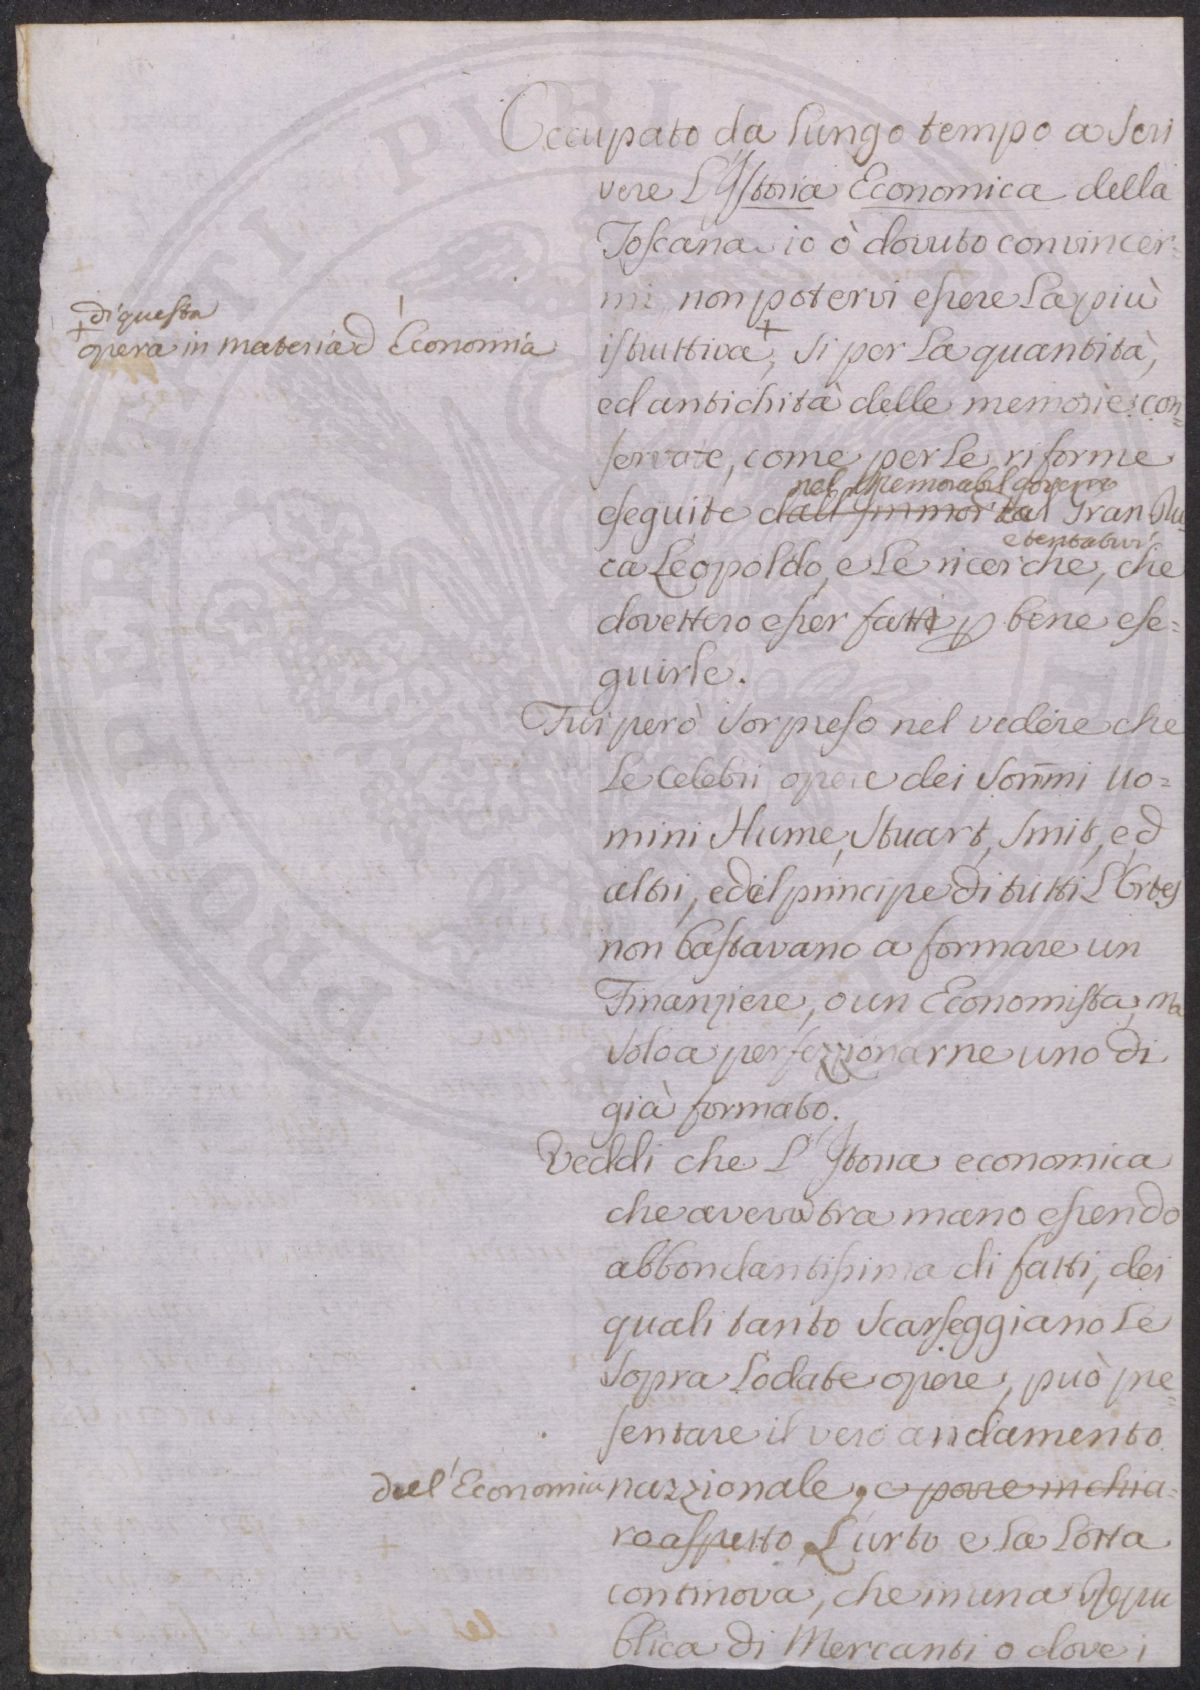 Occupato da lungo tempo a scri
vere L'Istoria Economica della
Toscana io ò dovuto convincer-
mi non potervi essere la più
di questa
+ opera in materia d'Economia
istruttiva +, si per la quantità,
ed antichità delle memorie con-
servate, come per le riforme
nel memorabil governo
eseguite dall'immortal Gran Du-
e tentativi
ca Leopoldo, e le ricerche, che
dovettero esser fatti p bene ese=
guirle.
Fui però sorpreso nel vedere che
le celebri opere dei sommi uo=
mini Hume, Stuart, Smit, ed
altri, ed il principe di tutti L'Ortes
non bastavano a formare un
Finanziere, o un Economista, ma
solo a perfezzionarne uno di
già formato.
Veddi che L'Istoria economica
che avevo tra mano essendo
abbondantissima di fatti, dei
quali tanto scarseggiano le
sopra lodate opere, può pre=
sentare il vero andamento
dell'Economia nazzionale, e porre in chia-
ro aspetto L'urto e la lotta
continova, che in una Repu
blica di Mercanti o dove i